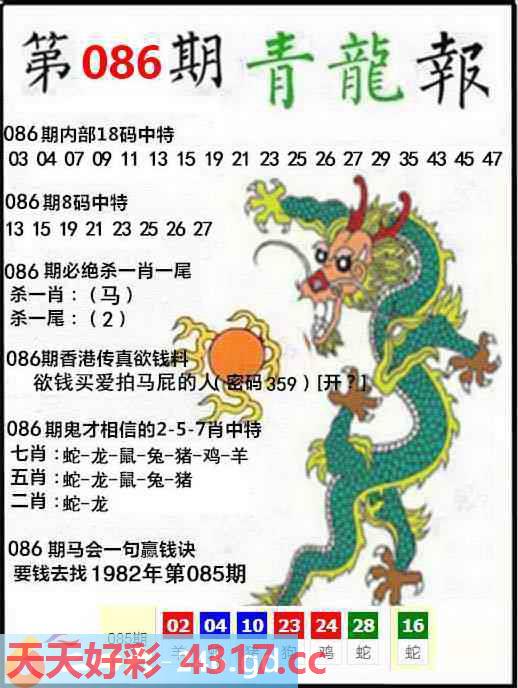 第086期青龍報
086期内部18码中特
03 04 07 09 11 13 15 19 21 23 25 26 27 29 35 43 45 47
086期8码中特
13 15 19 21 23 25 26 27
086期必绝杀一肖一尾
杀一肖：（马）
杀一尾：（2）
086期香港传真欲钱料
欲钱买爱拍马屁的人(密码359)[开？]
086期鬼才相信的2-5-7肖中特
七肖：蛇-龙-鼠-兔-猪-鸡-羊
五肖：蛇-龙-鼠-兔-猪
二肖：蛇-龙
086期马会一句赢钱诀
要钱去找1982年第085期
085期 02 04 10 23 24 28 16
羊 猪 狗 鸡 蛇 蛇
天天好彩 4317.cc